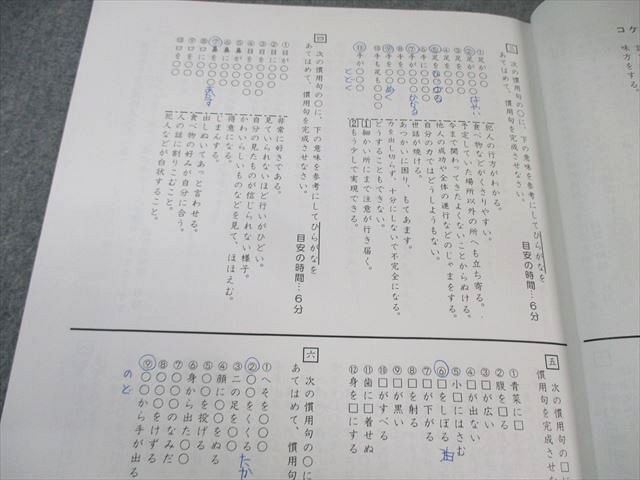 コケ
味方をする。
三 次の慣用句の○に、下の意味を参考にしてひらがなを
あてはめて、慣用句を完成させなさい。
目安の時間…６分
①足が○○
②足が○○○
③足を○○○
④足を○○○
⑤足を○○○○
⑥手が○○○
⑦手が○○○○
⑧手を○○○
⑨手を○○○
⑩手も足も○○○
⑪手が○○○
犯人の行方がわかる。
食べ物などがくさりやすい。
予定していた場所以外の所へも立ち寄る。
今まで関わってきたよくないことからぬける。
他人の成功や全体の進行などのじゃまをする。
自分の力ではどうしようもない。
世話が焼ける。
あつかいに困り、もてあます。
力を出し切らず、十分にしないで不完全になる。
どうすることもできない。
(1)細かい所にまで注意が行き届く。
(2)もう少しで実現できる。
とどく
四 次の慣用句の○に、下の意味を参考にしてひらがなを
あてはめて、慣用句を完成させなさい。
目安の時間…６分
①目が○○
②目に○○○
③目を○○○
④目を○○○
⑤鼻が○○○
⑥鼻に○○○
⑦鼻を○○○
⑧口に○○
⑨口を○○
⑩口を○○
非常に好きである。
見ていられないほど行いがひどい。
自分の見たものが信じられない様子。
かわいらしいものなどを見て、ほほえむ。
得意になる。
じまんする。
出しぬいてあっと言わせる。
食べ物の好みが自分に合う。
人の話に割りこむこと。
犯人などが白状すること。
五 次の慣用句の□に
慣用句を完成させな
①青菜に□
②腹を□る
③□が広い
④□が出ない
⑤小□にはさむ
⑥□をしぼる
油
⑦□が下がる
⑧□を射る
⑨□が黒い
⑩□がすべる
⑪歯に□着せぬ
⑫身を□にする
六 次の慣用句の○に
あてはめて、慣用句
①へそを○○○
②○○をくくる
たか
③二の足を○○
④顔に○○をぬる
⑤○○を投げる
⑥身から出た○○
⑦○○○のなみだ
⑧○○○をけずる
⑨○○から手が出る
のど